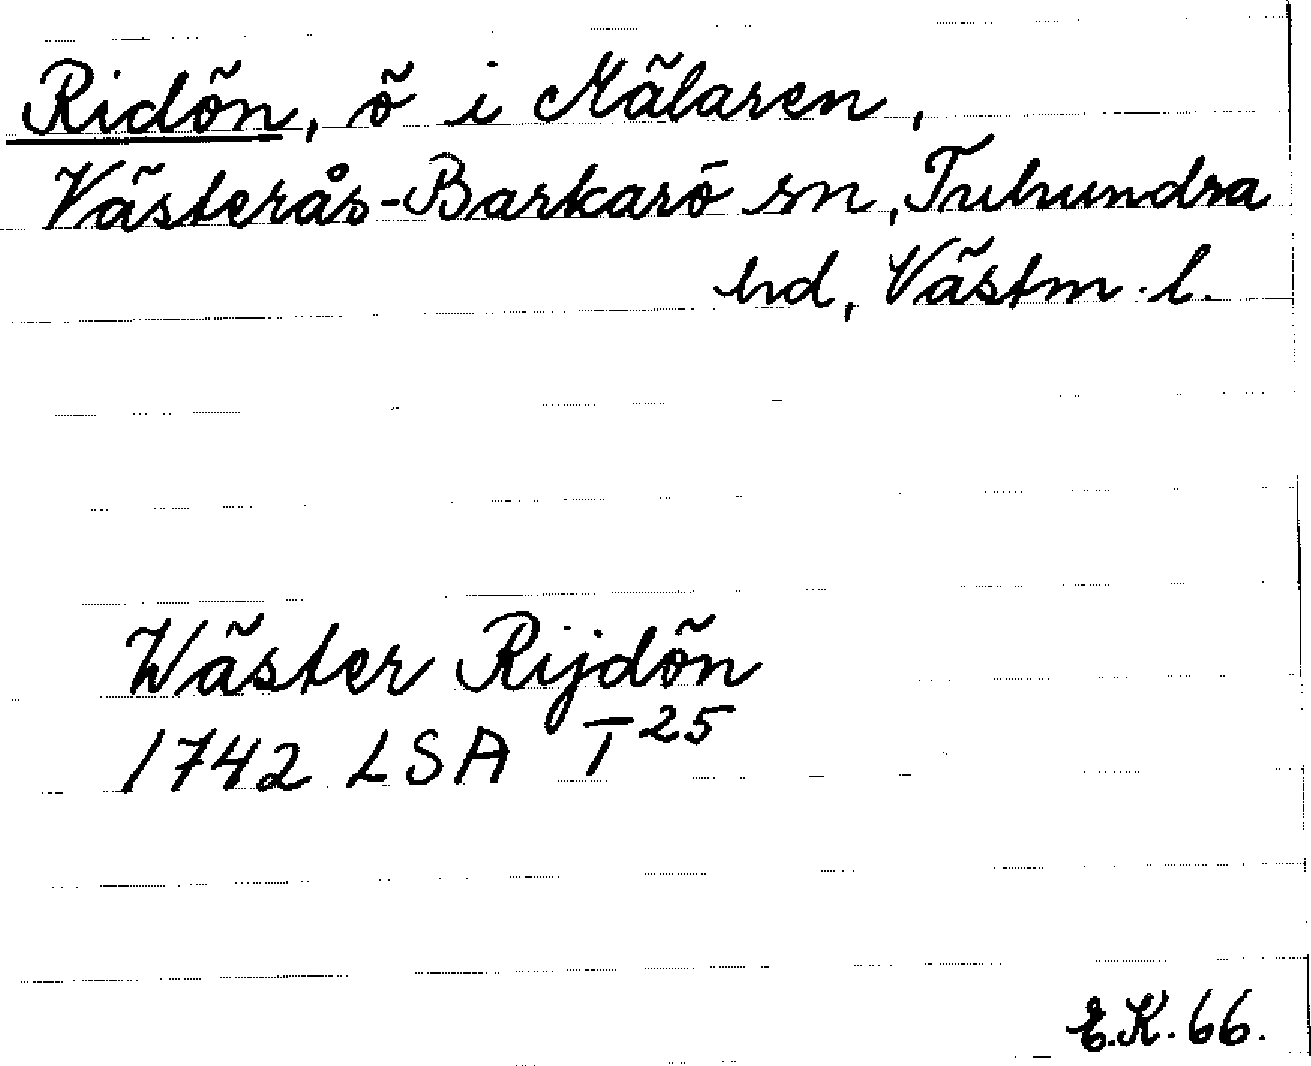 Ridön, ö i Mälaren,
Västerås-Barkarö sn, Tuhundra
hd, Västm. l.
Wäster Rijdön
1742 LSA T 25
E.K. 66.